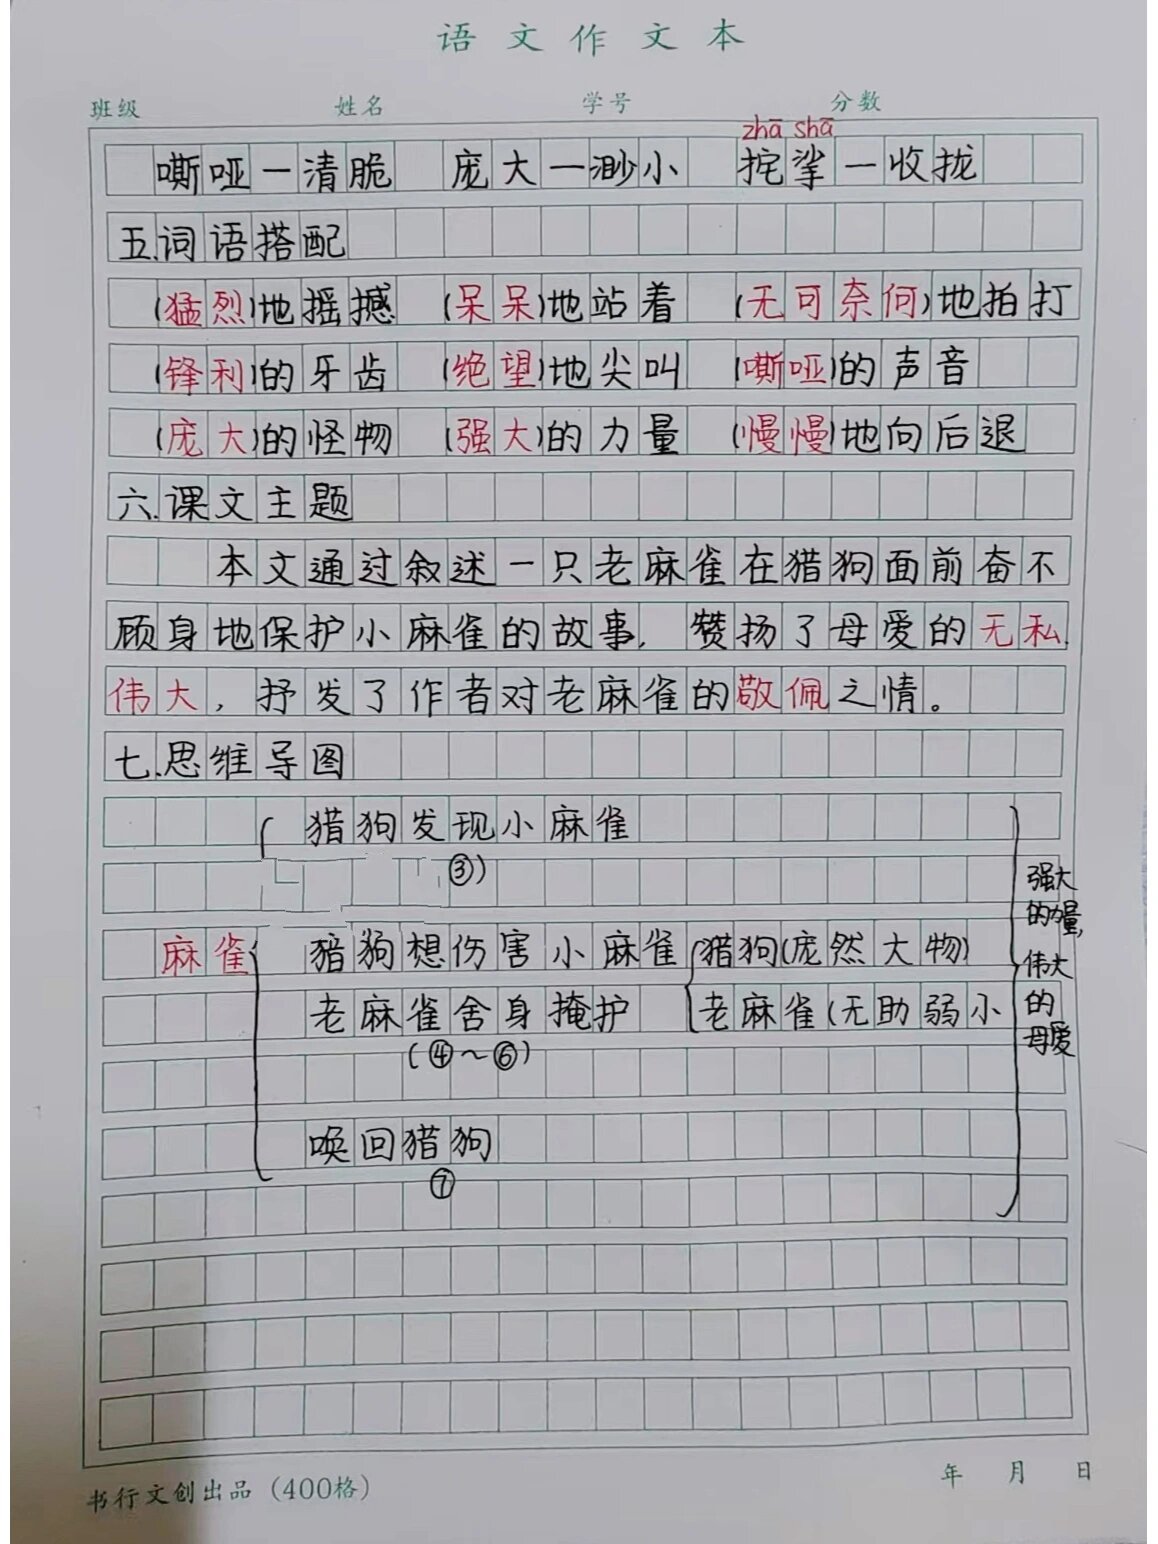 语文作文本
班级 姓名 学号 分数
zhā shā
嘶哑—清脆 庞大—渺小 挓挲—收拢
五.词语搭配
(猛烈)地摇撼 (呆呆)地站着 (无可奈何)地拍打
(锋利)的牙齿 (绝望)地尖叫 (嘶哑)的声音
(庞大)的怪物 (强大)的力量 (慢慢)地向后退
六.课文主题
本文通过叙述一只老麻雀在猎狗面前奋不
顾身地保护小麻雀的故事,赞扬了母爱的无私.
伟大,抒发了作者对老麻雀的敬佩之情。
七.思维导图
猎狗发现小麻雀
③)
麻雀 猎狗想伤害小麻雀 猎狗(庞然大物)
老麻雀舍身掩护 老麻雀(无助弱小
(④~⑥)
唤回猎狗
⑦
强大
的力量,
伟大
的
母爱
书行文创出品(400格) 年 月 日